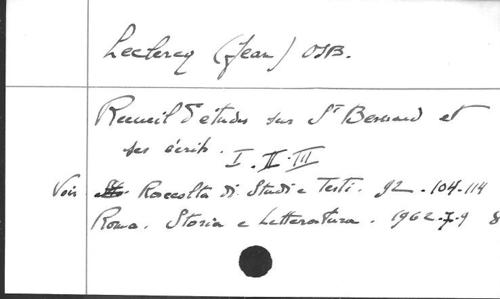 Leclercq (Jean) OSB.
Recueil d'études sur St Bernard et
ses écrits. I. II. III
Voir Raccolta di Studi e Testi. 92 - 104-114
Roma. Storia e Letteratura. 1962-7-9 8